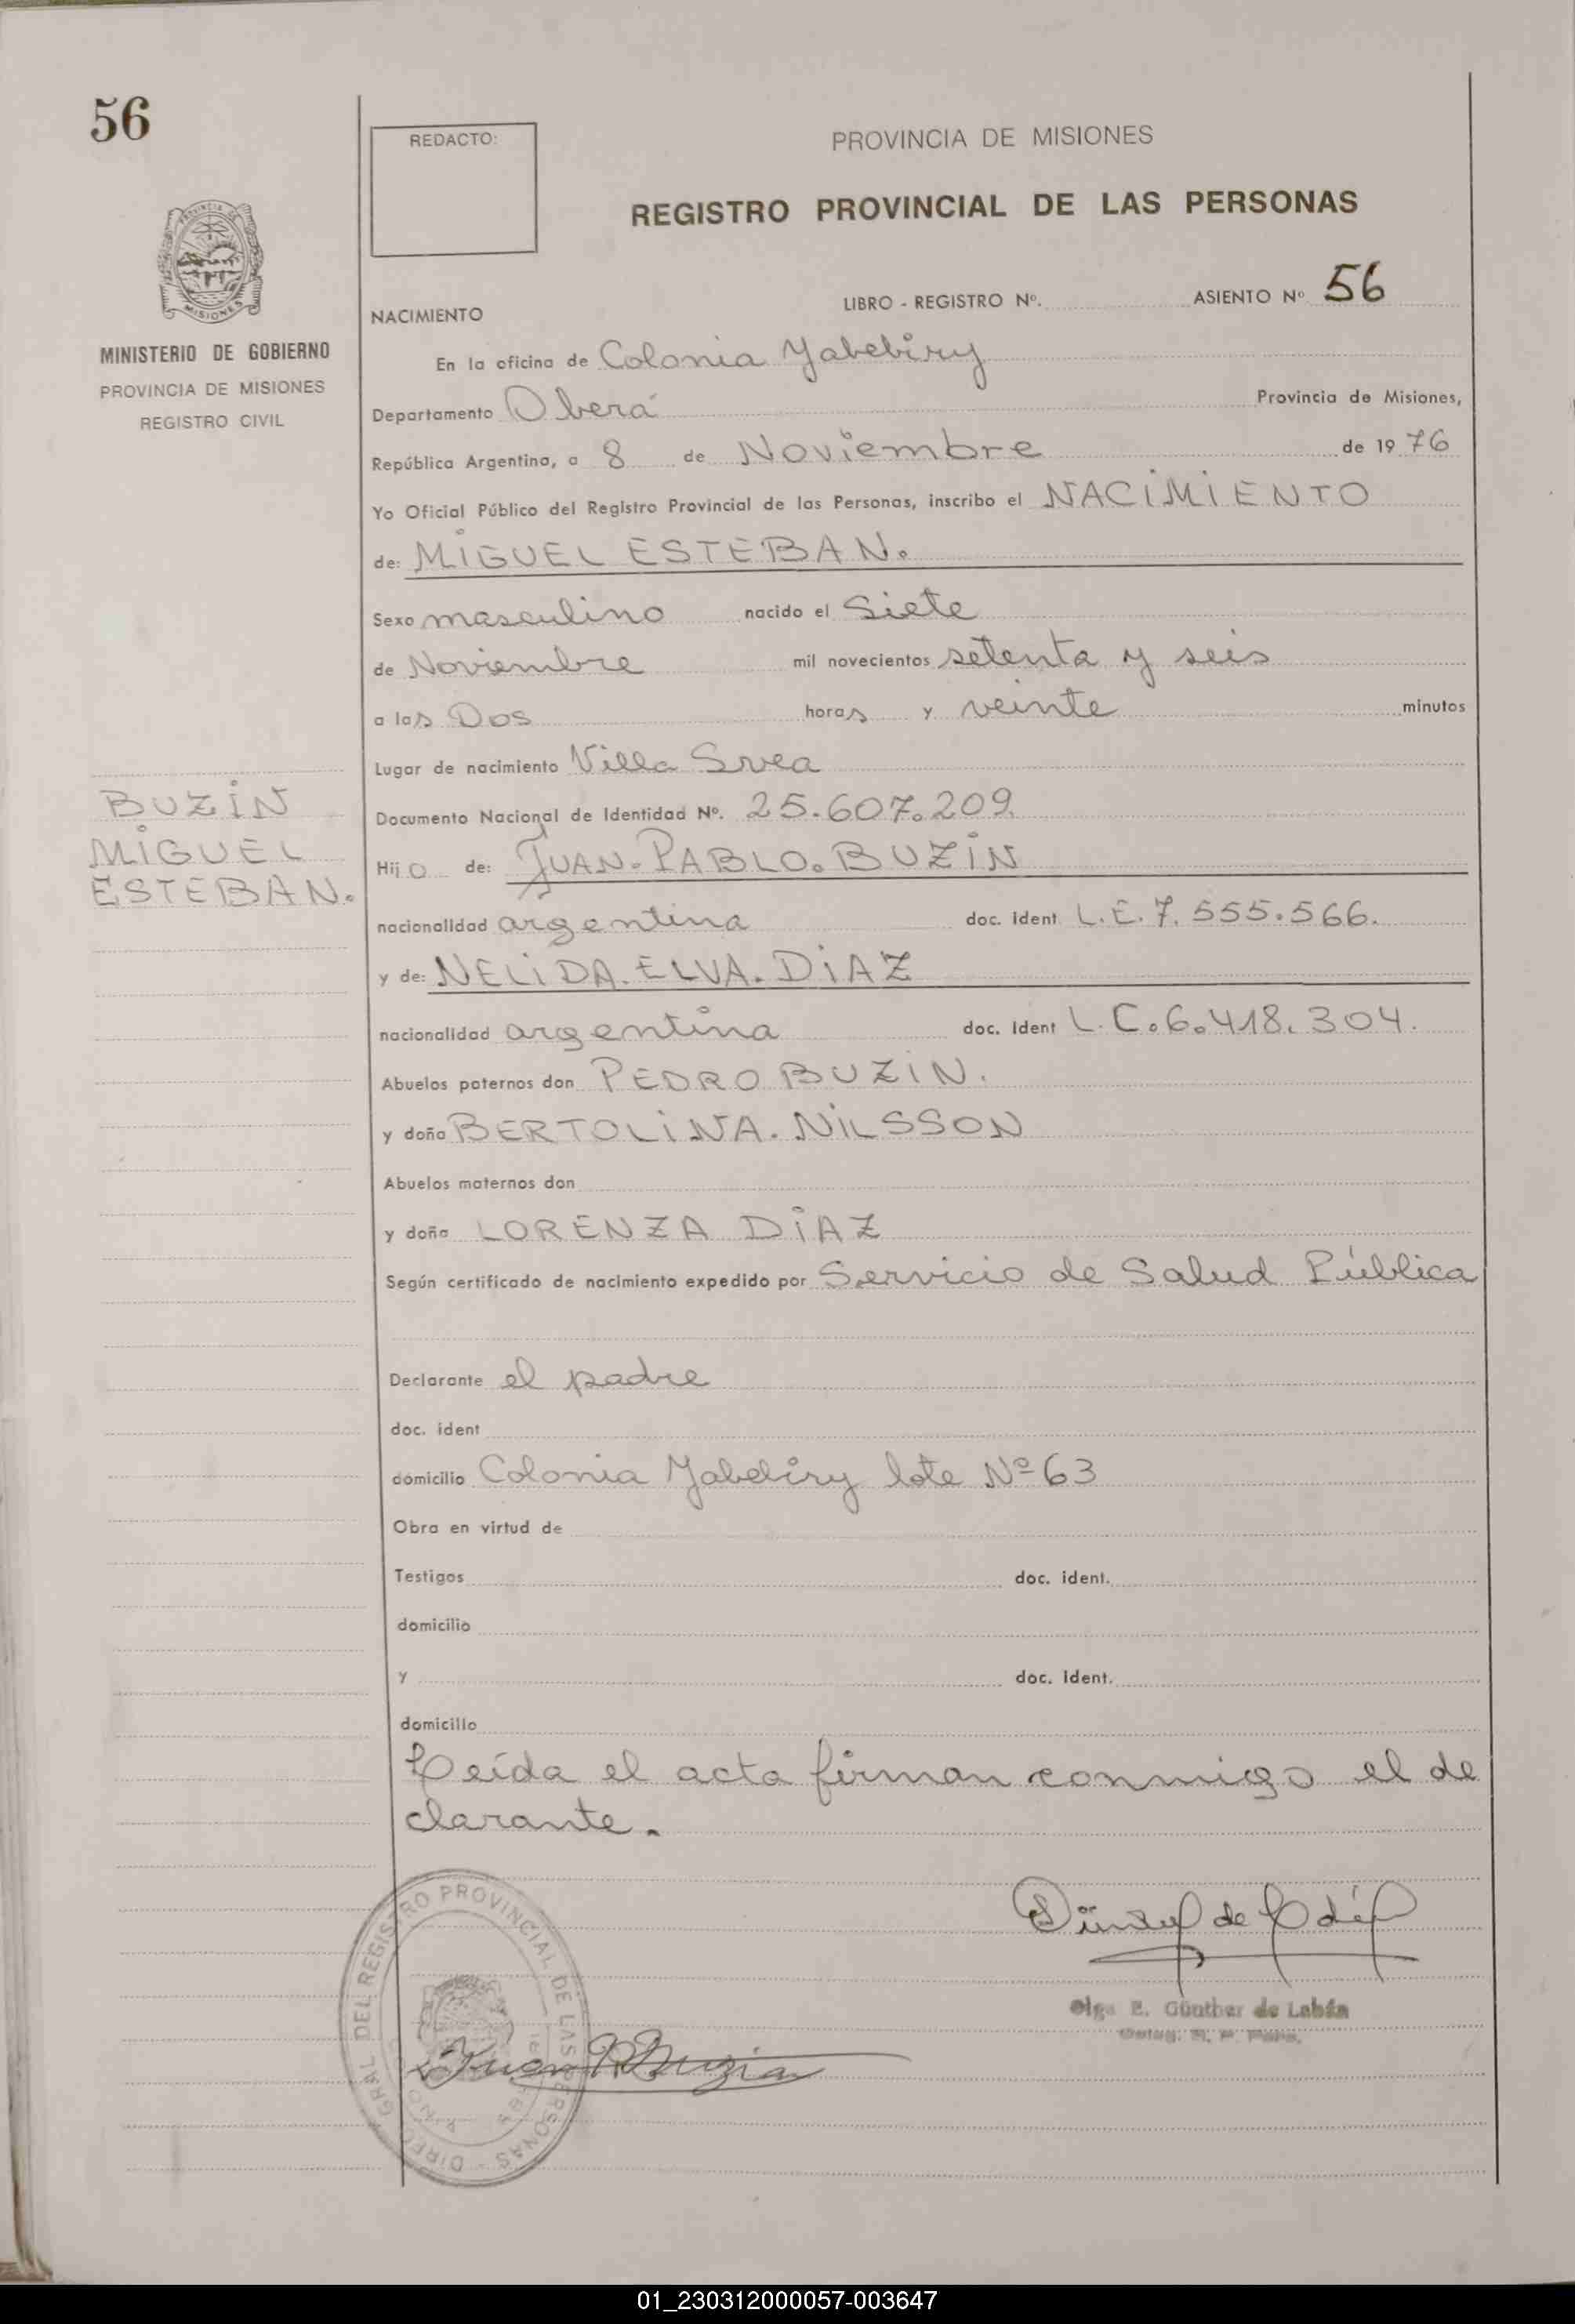 56
REDACTO:
PROVINCIA DE MISIONES
REGISTRO PROVINCIAL DE LAS PERSONAS
MISIONES
MINISTERIO DE GOBIERNO
PROVINCIA DE MISIONES
REGISTRO CIVIL
LIBRO - REGISTRO Nº. ASIENTO Nº 56
NACIMIENTO
En la oficina de Colonia Yabebiry
Departamento Oberá Provincia de Misiones,
República Argentina, a 8 de Noviembre de 19 76
Yo Oficial Público del Registro Provincial de las Personas, inscribo el NACIMIENTO
de: MIGUEL ESTEBAN.
Sexo masculino nacido el Siete
de Noviembre mil novecientos setenta y seis
a las Dos horas y veinte minutos
Lugar de nacimiento Villa Svea
BUZIN
MIGUEL
ESTEBAN.
Documento Nacional de Identidad Nº. 25.607.209.
Hijo de: JUAN.PABLO.BUZIN
nacionalidad argentina doc. ident L.E.7.555.566.
y de: NELIDA.ELVA.DIAZ
nacionalidad argentina doc. ident L.C.6.418.304.
Abuelos paternos don PEDRO BUZIN.
y doña BERTOLINA.NILSSON
Abuelos maternos don
y doña LORENZA DIAZ
Según certificado de nacimiento expedido por Servicio de Salud Pública
Declarante el padre
doc. ident
domicilio Colonia Yabebiry lote Nº 63
Obra en virtud de
Testigos doc. ident.
domicilio
y doc. ident.
domicilio
Leída el acta firman conmigo el de
clarante.
Olga E. Günther de Labán
DEL REGISTRO PROVINCIAL DE LAS PERSONAS
Juan P Buzin
01_230312000057-003647